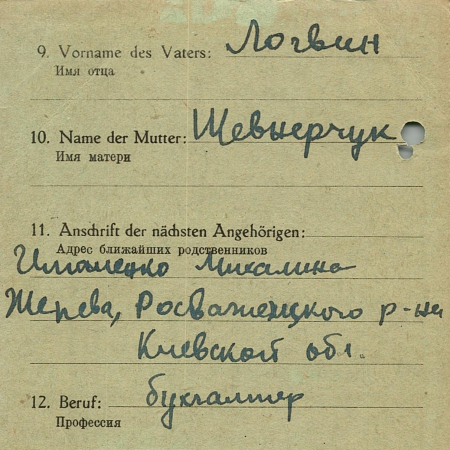 9. Vorname des Vaters: Логвин
Имя отца
10. Name der Mutter: Шевнерчук
Имя матери
11. Anschrift der nächsten Angehörigen:
Адрес ближайших родственников
Михалина
Жерева, Розважецкого р-на
Киевской обл.
12. Beruf: бухгалтер
Профессия